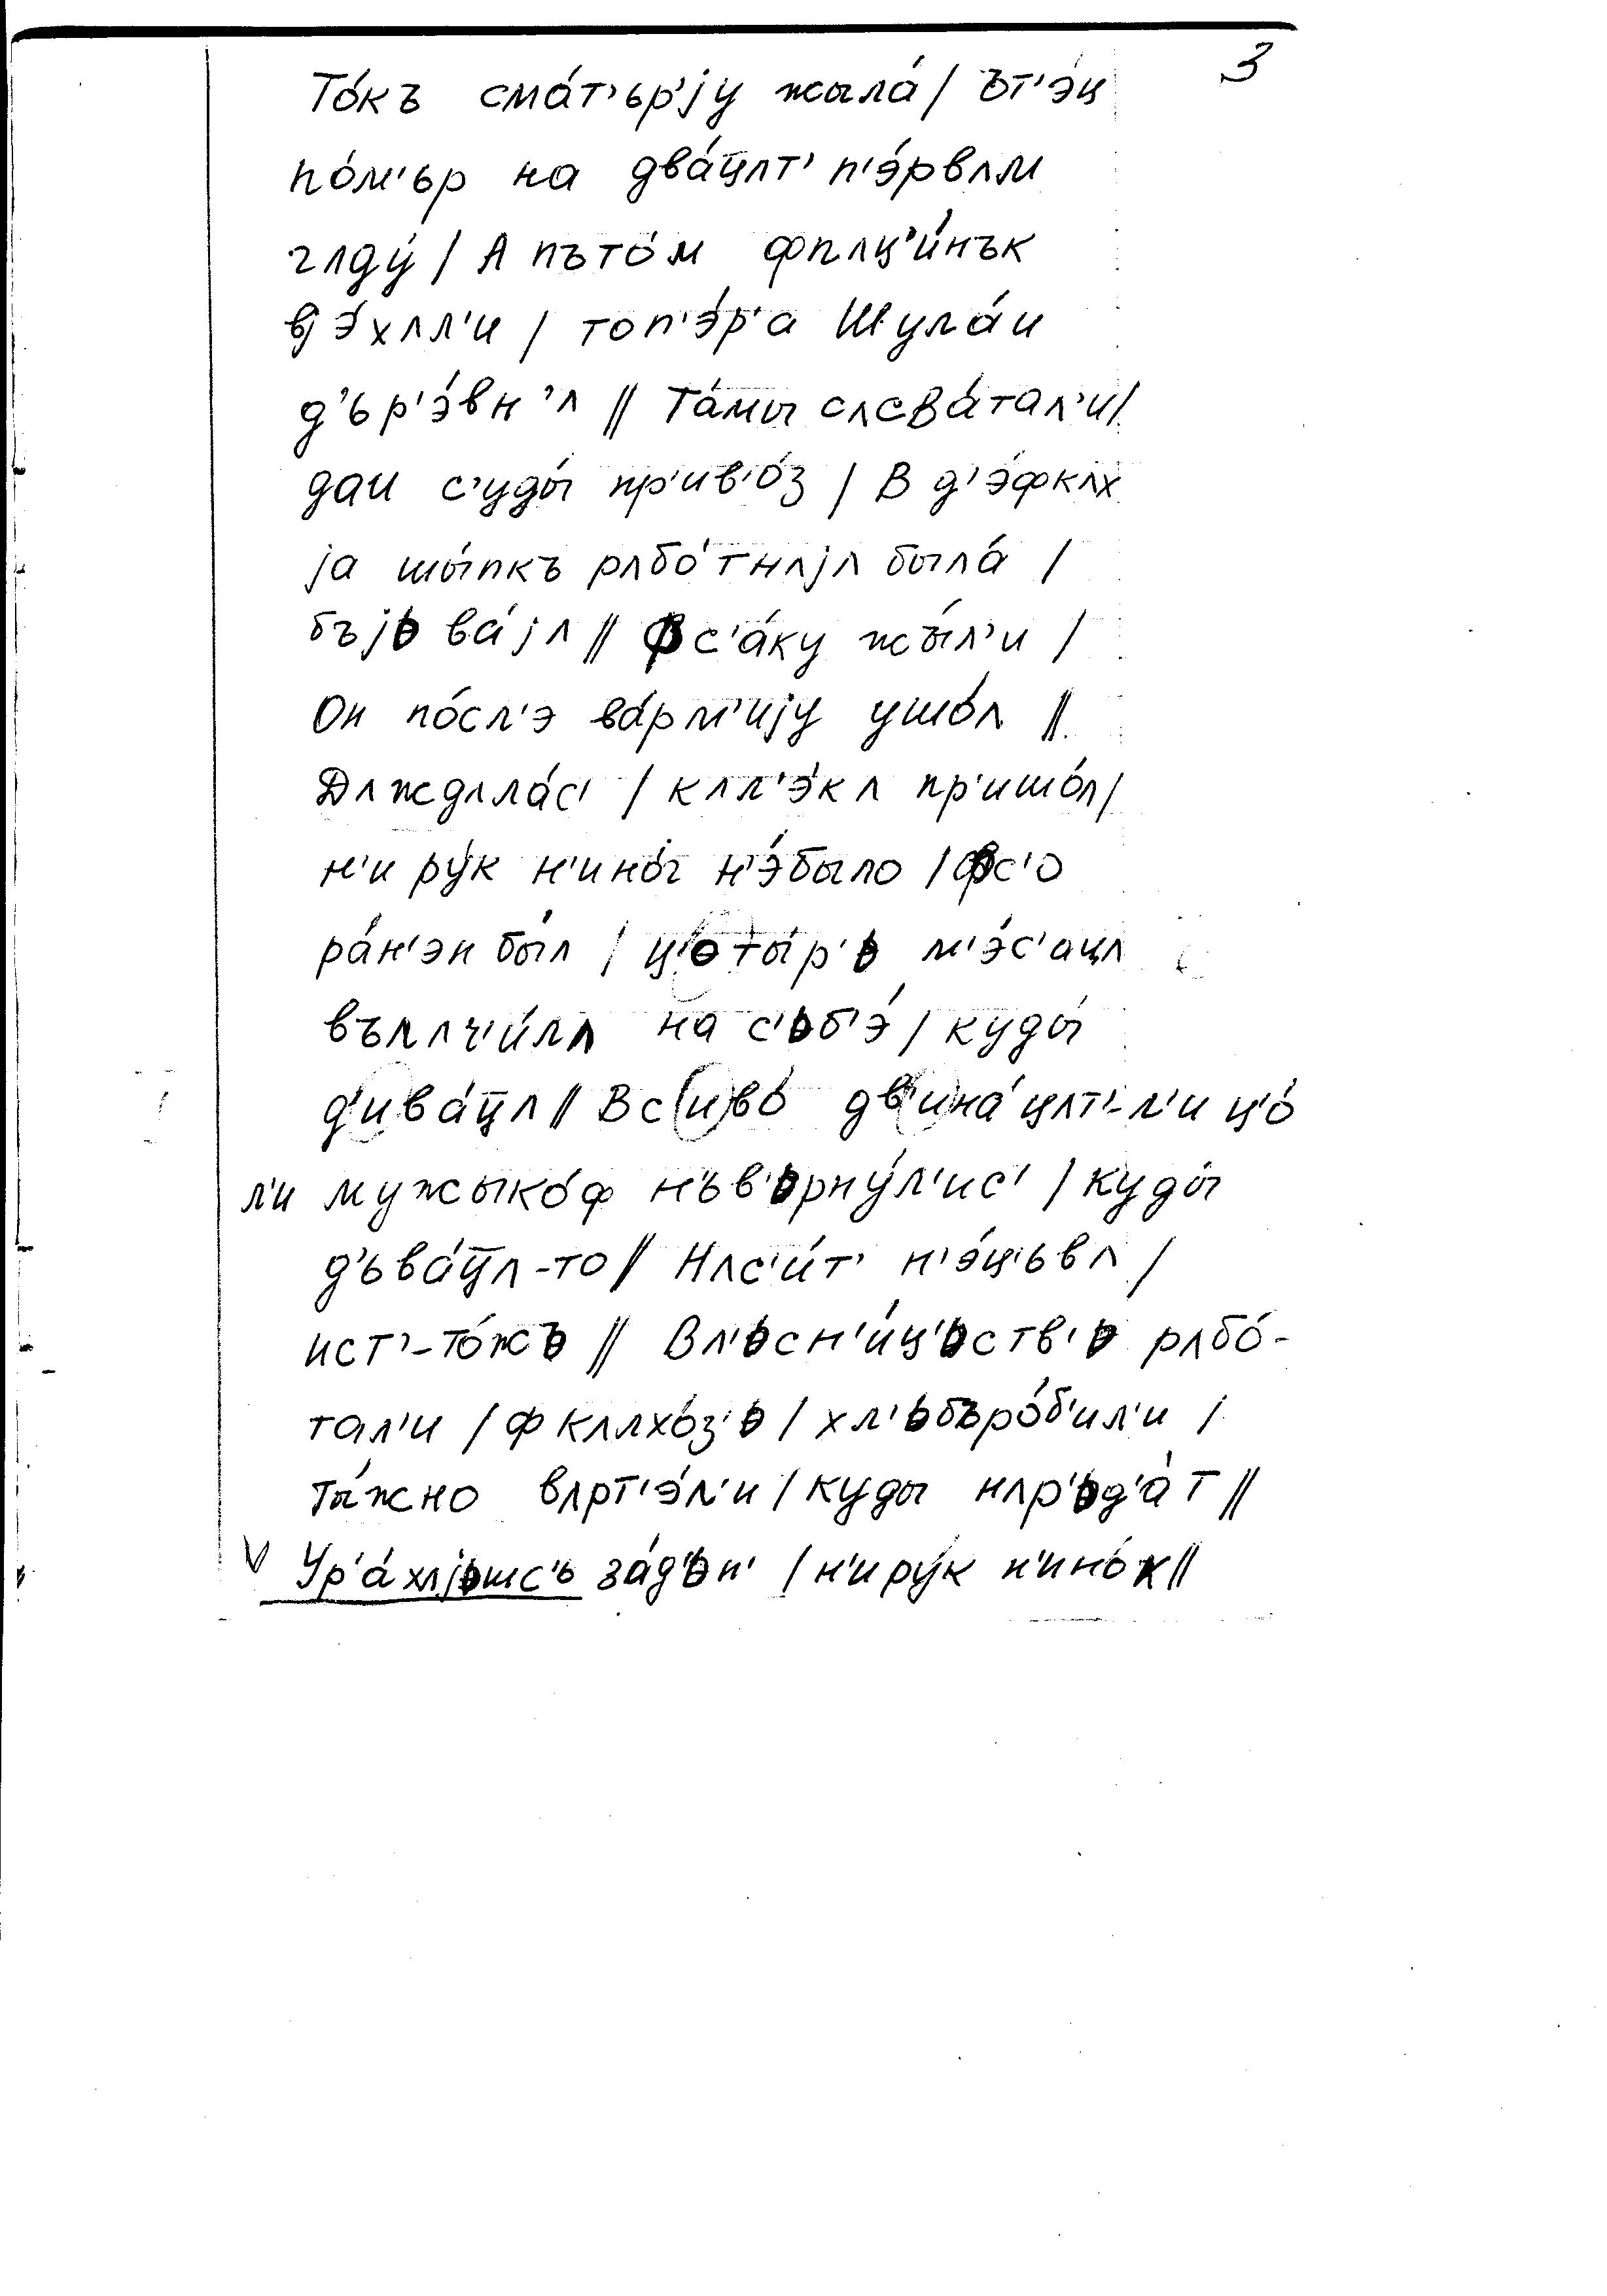 3
То́къ сма́т'ьр'jу жыла́ / ът'э́ц
по́м'ьр на два́цʌт' п'э́рвʌм
гʌду́ / А пъто́м фпʌц'и́нък
вjэ́хʌл'и / топ'э́р'а Шула́и
д'ьр'э́вн'ʌ // Та́мы сʌсва́тал'и /
даи с'уды́ пр'ив'о́з / В д'э́фкʌх
jа шы́пкъ рʌбо́тнʌjʌ была́ /
бъjьва́jʌ // Фс'а́ку жы́л'и /
Он по́сл'э ва́рм'иjу ушо́л //
Дʌждʌла́с' / кʌл'э́кʌ пр'ишо́л /
н'и ру́к н'ино́г н'э́было / фс'о
ра́н'эн бы́л / ц'оты́р'ь м'э́с'ацʌ
въʌлч'и́лʌ на с'ьб'э́ / куды́
д'ива́цʌ // Вс(и)во́ дв'ина́цʌт'-л'и ц'о́
л'и мужыко́ф нъв'ьрну́л'ис' / куды́
д'ьва́цʌ-то // Нʌс'и́т' н'э́ц'ьвʌ /
ист'-то́жъ // Вл'ьсн'и́ц'ьств'ь рʌбо́-
тал'и / ф кʌлхо́з'ь / хл'ьбъро́б'ил'и /
ты́жно вʌрт'э́л'и / куды нʌр'ьд'а́т //
V Ур'а́хʌjьшс'ь за́д'ьн' / н'иру́к н'ино́к //